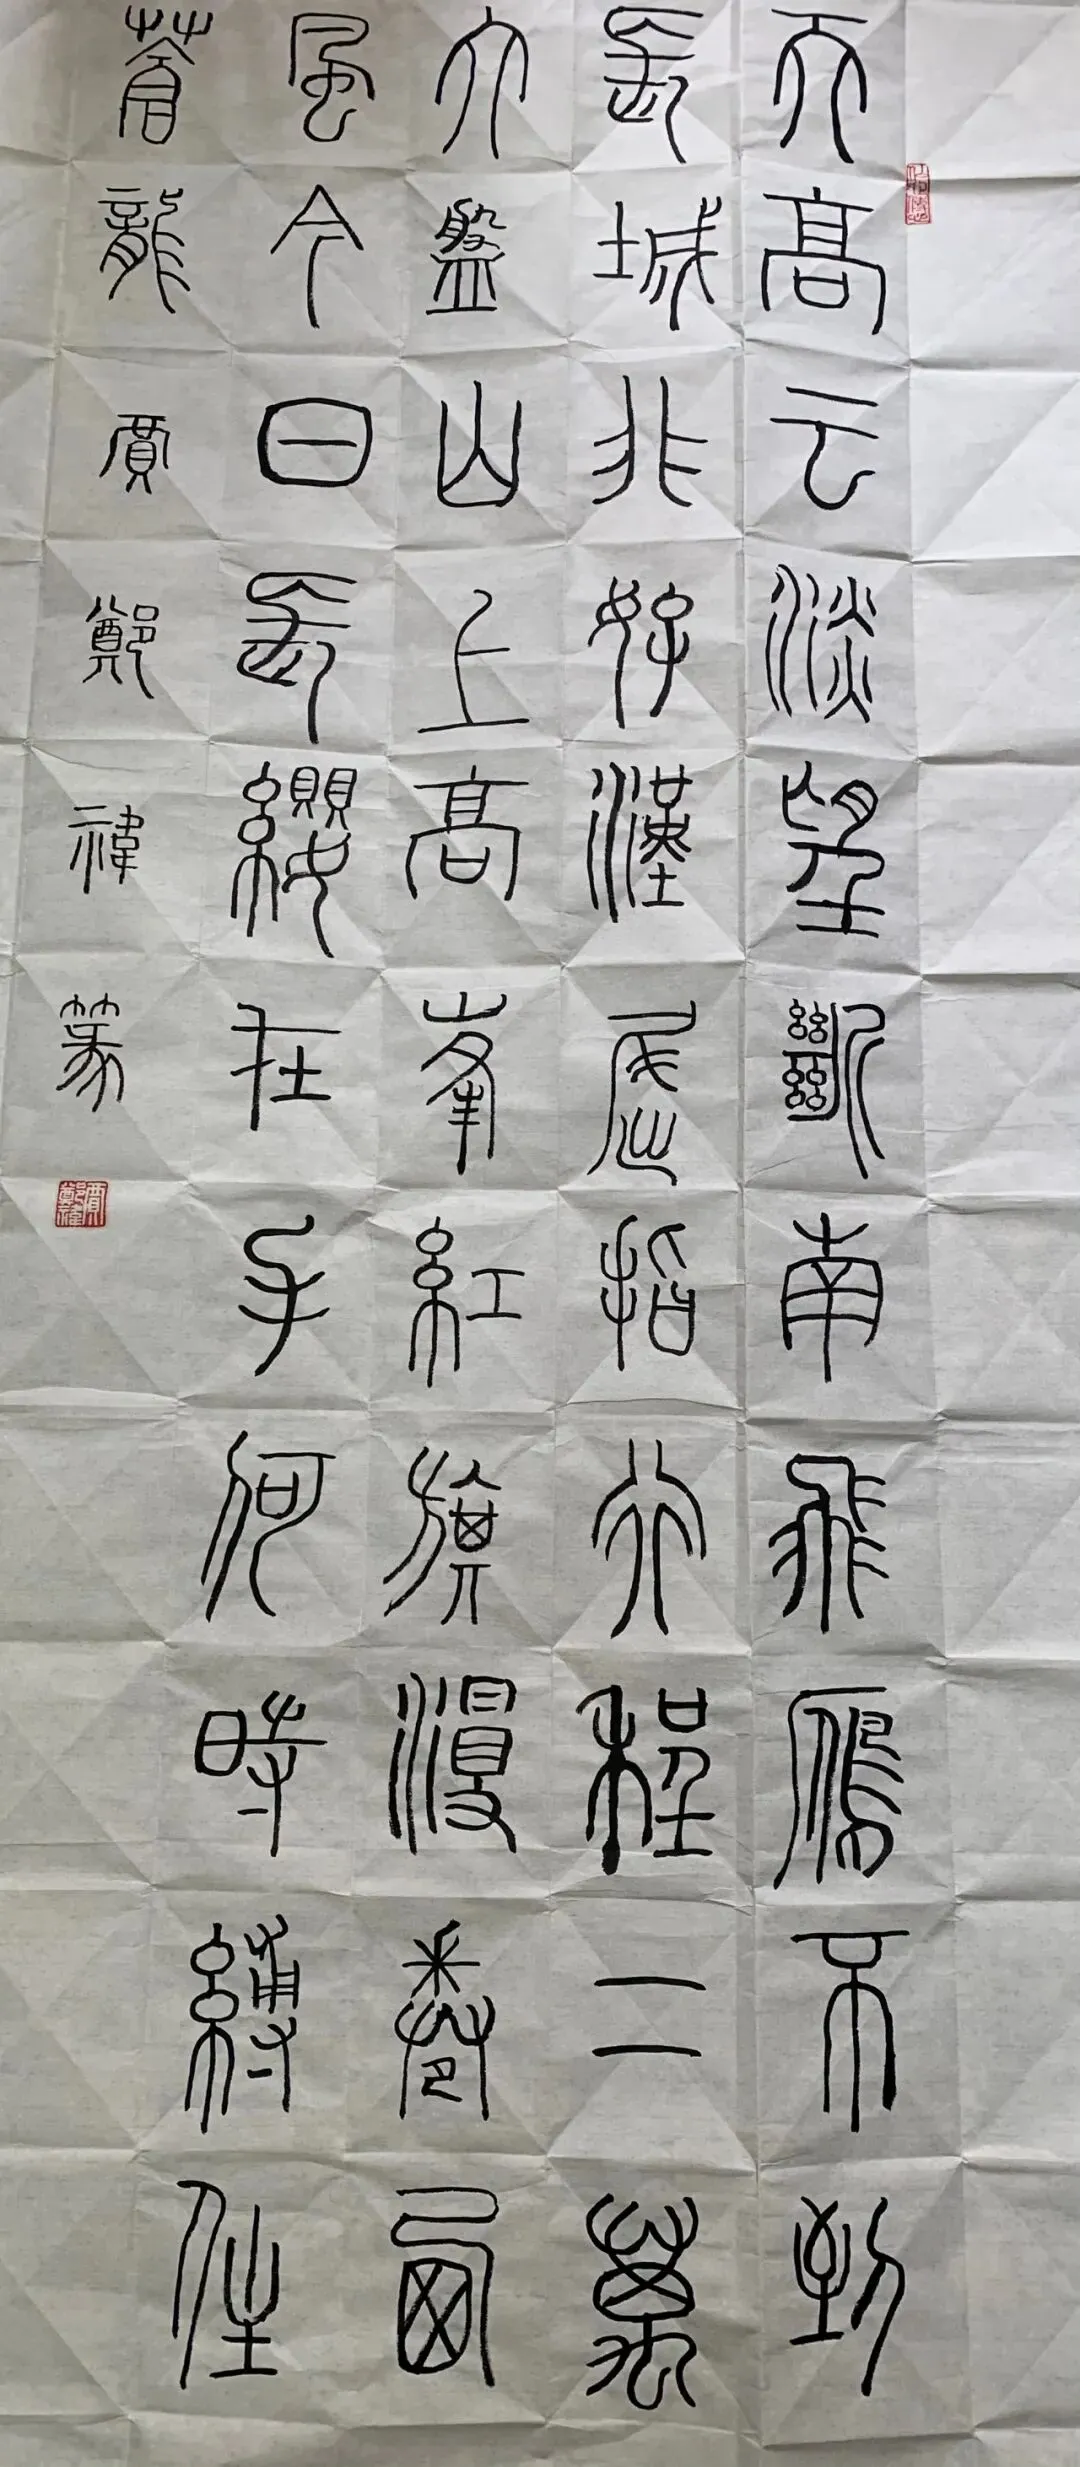 天高云淡望斷南飛鴈不到
長城非好漢屈指行程二萬
六盤山上高峯紅旗漫卷西
風今日長纓在手何時縛住
蒼龍賈鄭禕篆
賈鄭禕